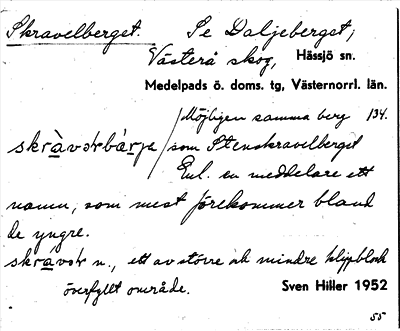 Skravelberget. Se Daljeberget,
Västerå skog, Hässjö sn.
Medelpads ö. doms. tg, Västernorrl. län.
Möjligen samma berg 134.
skràvəbár̥jə / som Stenskravelberget
Enl. en meddelare ett
namn, som mest förekommer bland
de yngre.
skràvəl n., ett av större och mindre klippblock
överfyllt område. Sven Hiller 1952
55